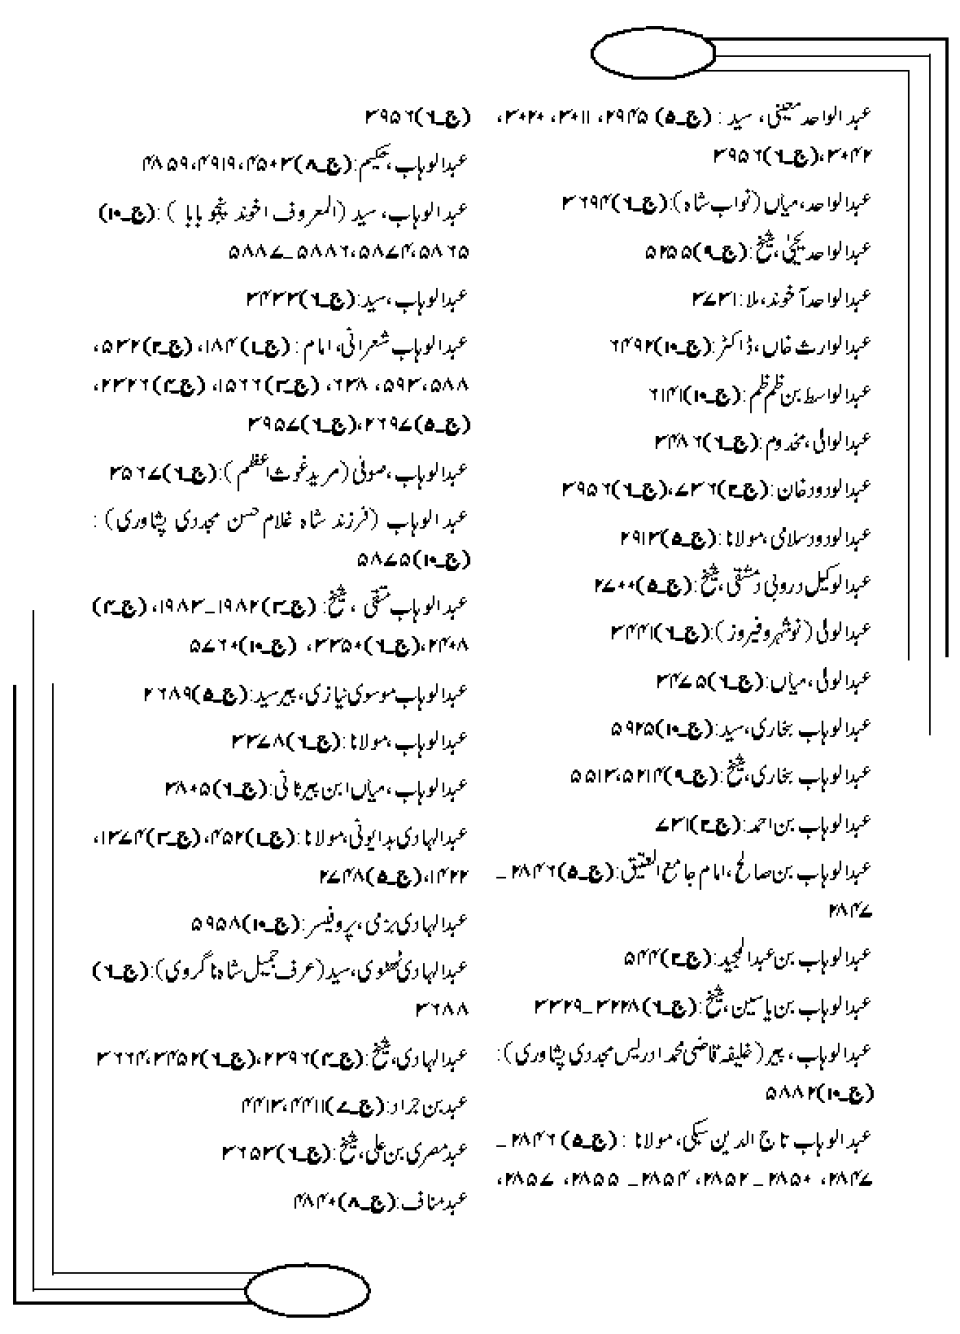 عبد الواحد معینی، سید : (ج۔۵) ۲۹۴۵، ۳۰۱۱، ۳۰۲۰،
۳۰۴۲،(ج۔۶)۳۹۵۶
عبدالواحد،میاں (نواب شاہ):(ج۔۶)۳۶۹۴
عبدالواحد یحییٰ،شیخ:(ج۔۹)۵۲۵۵
عبدالواحد آخوند،ملا:۳۷۳۱
عبدالوارث خاں،ڈاکٹر:(ج۔۱۰)۶۴۹۲
عبدالواسط بن ظم ظم:(ج۔۱۰)۶۱۴۱
عبدالوالی،مخدوم:(ج۔۶)۳۴۸۶
عبدالودود خان:(ج۔۲)۷۳۶،(ج۔۶)۳۹۵۶
عبدالودود سلامی،مولانا:(ج۔۵)۲۹۱۳
عبدالوکیل دروبی دمشقی،شیخ:(ج۔۵)۲۷۰۰
عبدالولی (نوشہرو فیروز):(ج۔۶)۳۴۴۱
عبدالولی،میاں:(ج۔۶)۳۴۷۵
عبدالوہاب بخاری،سید:(ج۔۱۰)۵۹۲۵
عبدالوہاب بخاری،شیخ:(ج۔۹)۵۲۱۴،۵۵۱۳
عبدالوہاب بن احمد:(ج۔۲)۷۳۱
عبدالوہاب بن صالح،امام جامع العتیق:(ج۔۵)۲۸۴۶۔
۲۸۴۷
عبدالوہاب بن عبدالمجید:(ج۔۲)۵۴۴
عبدالوہاب بن یاسین،شیخ:(ج۔۶)۳۲۲۸۔۳۳۲۹
عبدالوہاب، پیر (خلیفہ قاضی محمد ادریس مجددی پشاوری):
(ج۔۱۰)۵۸۸۲
عبدالوہاب تاج الدین سبکی، مولانا : (ج۔۵) ۲۸۴۶۔
۲۸۴۷، ۲۸۵۰۔۲۸۵۲، ۲۸۵۴۔ ۲۸۵۵، ۲۸۵۷،
(ج۔۶)۳۹۵۶
عبدالوہاب،حکیم:(ج۔۸)۴۵۰۳،۴۹۱۹،۴۸۵۹
عبدالوہاب، سید (المعروف اخوند پنجو بابا ) :(ج۔۱۰)
۵۸۶۵،۵۸۷۴،۵۸۸۶۔۵۸۸۷
عبدالوہاب،سید:(ج۔۶)۳۴۳۳
عبدالوہاب شعرانی، امام : (ج۔۱)۱۸۴، (ج۔۲)۵۳۲،
۵۸۸،۵۹۳، ۶۳۸، (ج۔۳)۱۵۶۶، (ج۔۴)۲۳۲۶،
(ج۔۵)۲۶۹۷،(ج۔۶)۳۹۵۷
عبدالوہاب،صوفی (مرید غوث اعظم):(ج۔۶)۳۵۶۷
عبدالوہاب (فرزند شاہ غلام حسن مجددی پشاوری) :
(ج۔۱۰)۵۸۷۵
عبدالوہاب متقی ،شیخ: (ج۔۳)۱۹۸۲۔۱۹۸۳، (ج۔۴)
۲۴۰۸،(ج۔۶)۳۳۵۰، (ج۔۱۰)۵۷۶۰
عبدالوہاب موسوی نیازی،پیر سید:(ج۔۵)۲۶۸۹
عبدالوہاب،مولانا:(ج۔۶)۳۳۷۸
عبدالوہاب،میاں ابن پیر ثانی:(ج۔۶)۳۸۰۵
عبدالہادی بدایونی،مولانا:(ج۔۱)۴۵۲،(ج۔۳)۱۳۷۴،
۱۴۲۲،(ج۔۵)۲۷۴۸
عبدالہادی بزمی،پروفیسر:(ج۔۱۰)۵۹۵۸
عبدالہادی ٹھٹھوی،سید (عرف جمیل شاہ ناگروی):(ج۔۶)
۳۶۸۸
عبدالہادی،شیخ:(ج۔۴)۲۳۹۶،(ج۔۶)۳۴۵۲،۳۶۶۴
عبد بن جراد:(ج۔۷)۴۴۱۱،۴۴۱۳
عبد مصری بن علی،شیخ:(ج۔۶)۳۶۵۳
عبد مناف:(ج۔۸)۴۸۴۰